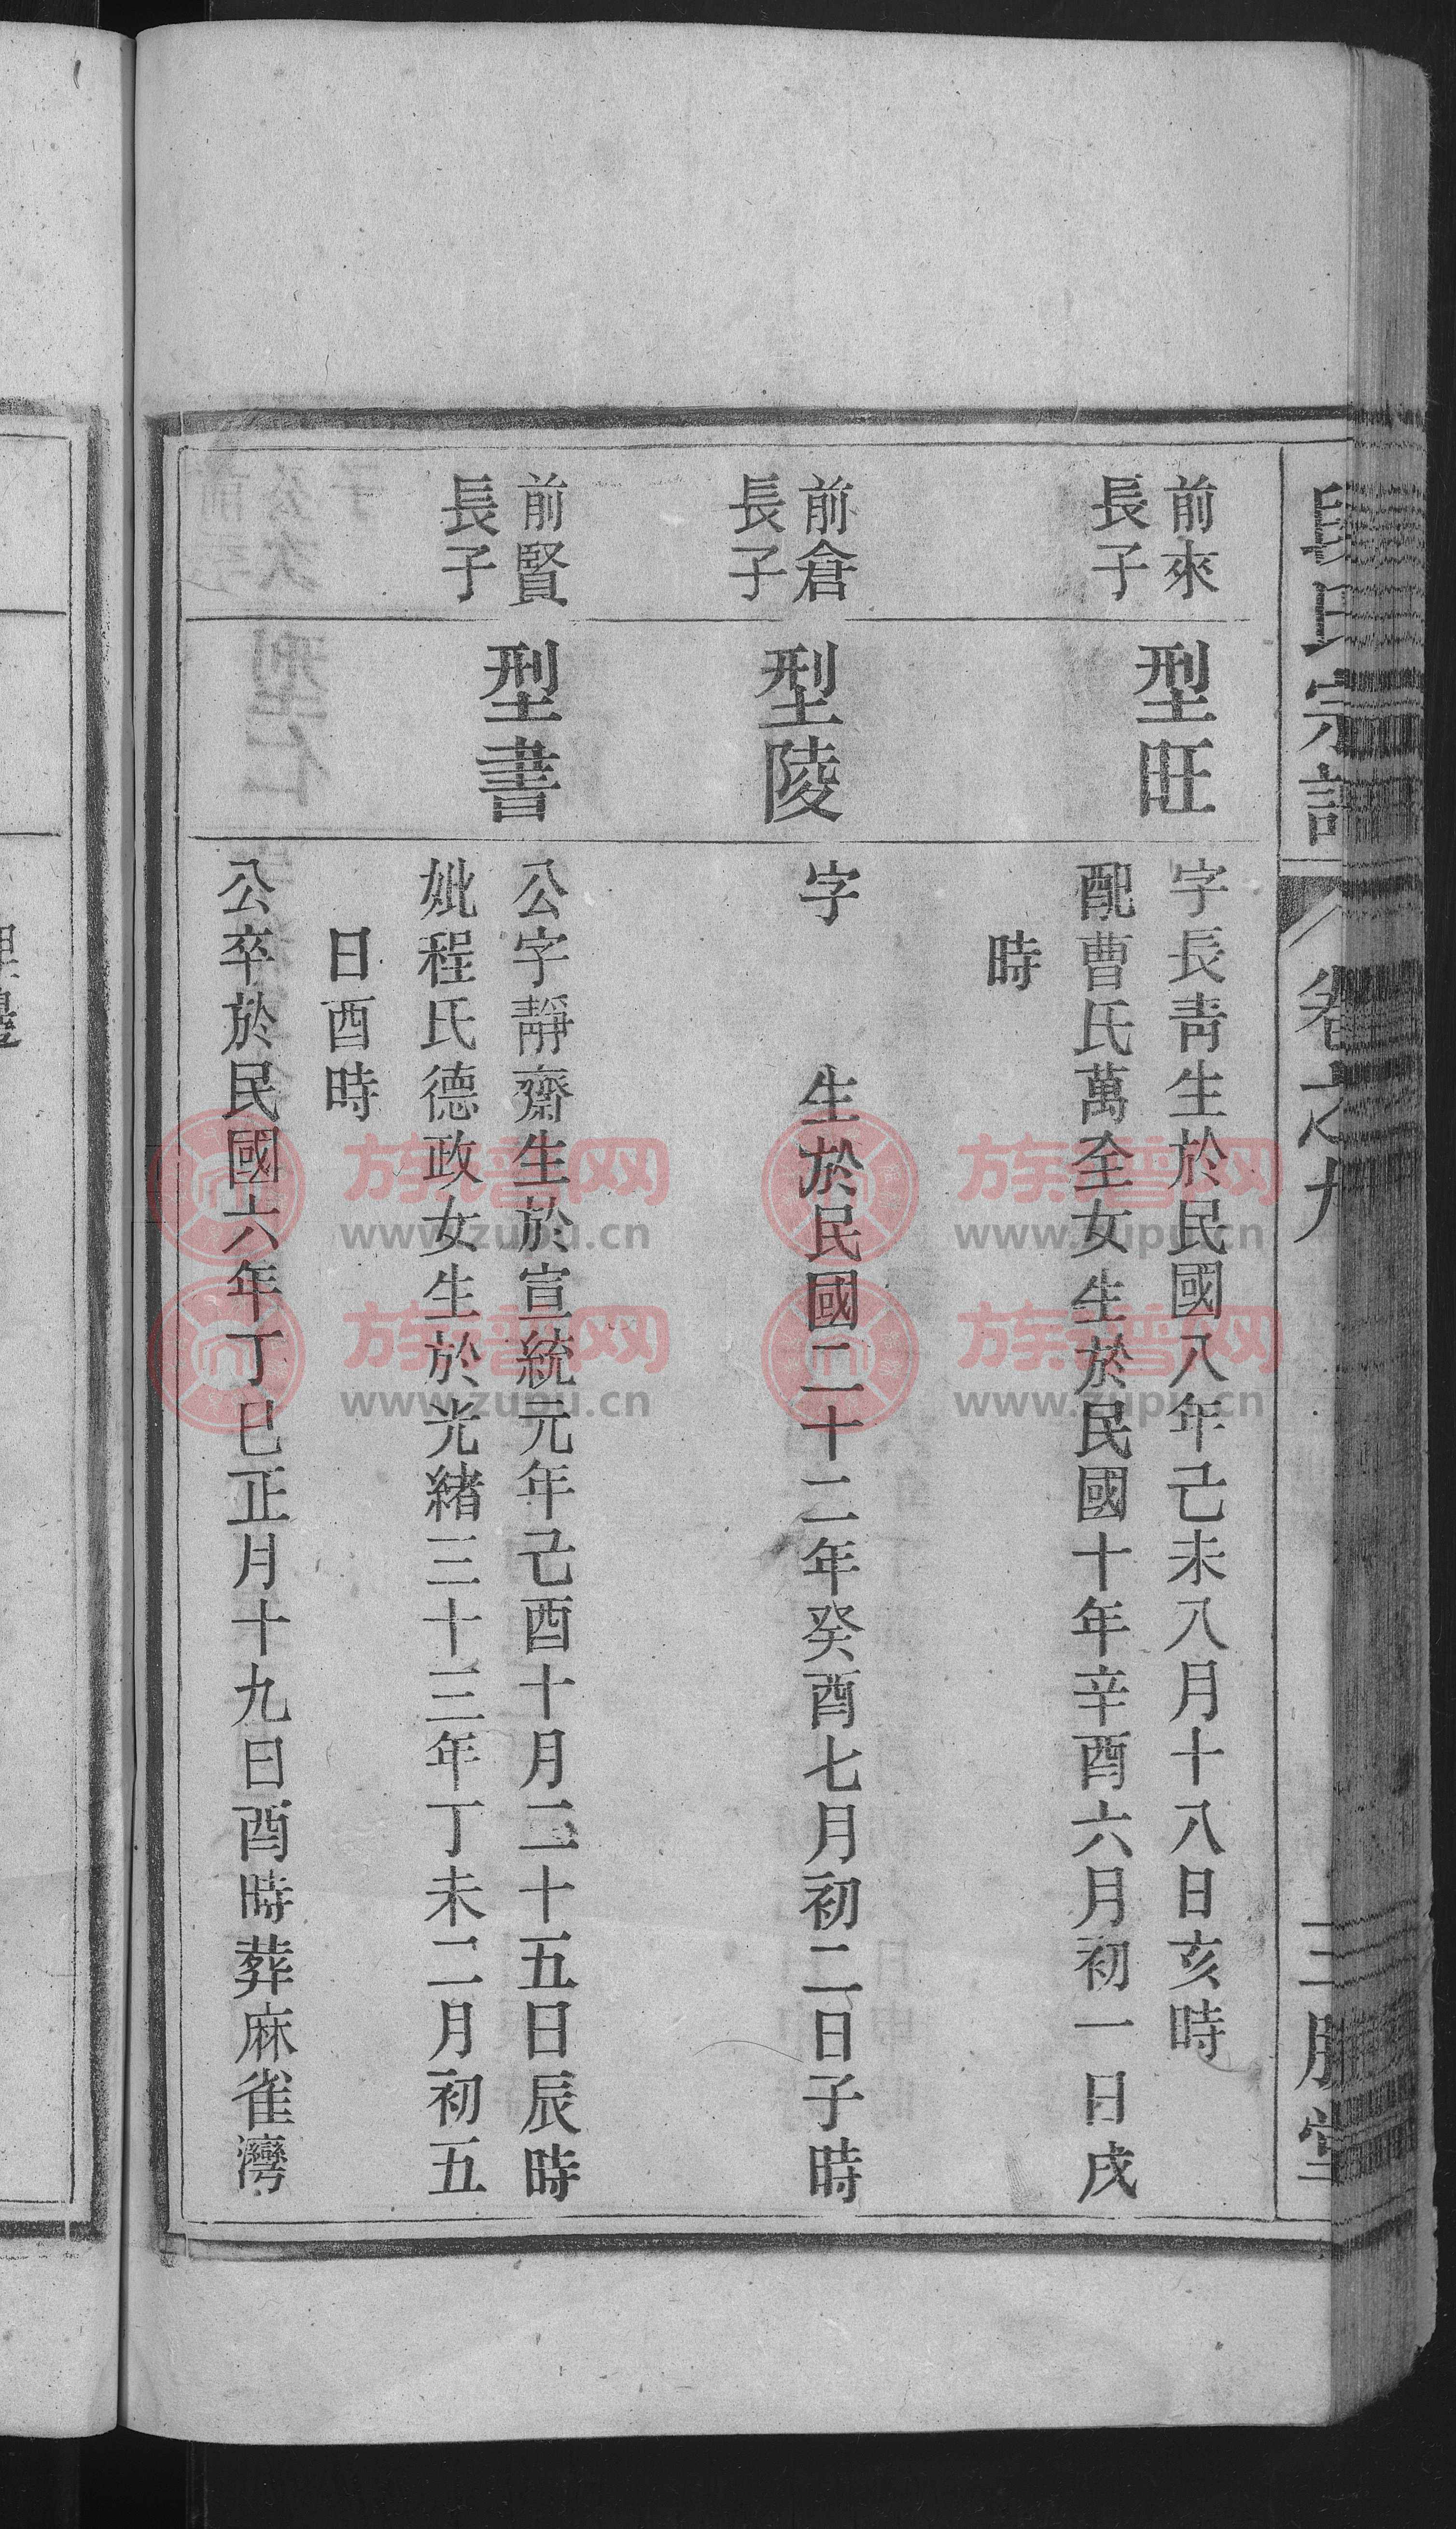 氏宗譜
卷之九
三
堂
前來
長子
型旺
字長青生於民國八年己未八月十八日亥時
配曹氏萬全女生於民國十年辛酉六月初一日戌
時
前倉
長子
型陵
字 生於民國二十二年癸酉七月初二日子時
前賢
長子
型書
公字靜齋生於宣統元年己酉十月二十五日辰時
妣程氏德政女生於光緒三十三年丁未二月初五
日酉時
公卒於民國六年丁巳正月十九日酉時葬麻雀灣
族譜网
www.zupu.cn
族譜网
www.zupu.cn
族譜网
www.zupu.cn
族譜网
www.zupu.cn